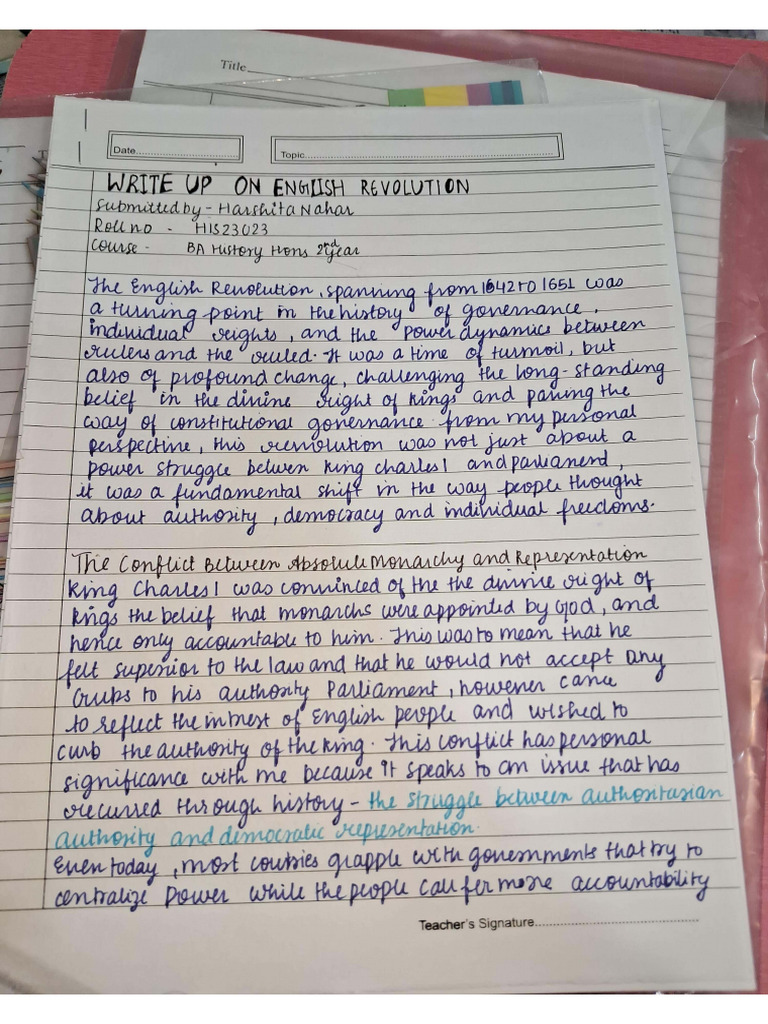 Title
Date
Topic
WRITE UP ON ENGLISH REVOLUTION
Submitted by - Harshita Nahar
Roll no - HIS23023
Course - BA History Hons 2nd year
The English Revolution, spanning from 1642 to 1651 was
a turning point in the history of governance,
individual rights, and the power dynamics between
rulers and the ruled. It was a time of turmoil, but
also of profound change, challenging the long-standing
belief in the divine right of kings and paving the
way of constitutional governance from my personal
perspective, this revolution was not just about a
power struggle betwen king charles I and parliament,
it was a fundamental shift in the way people thought
about authority, democracy and individual freedoms.
The Conflict Between Absolute Monarchy and Representation
King Charles I was convinced of the the divine right of
kings the belief that monarchs were appointed by God, and
hence only accountable to him. This was to mean that he
felt superior to the law and that he would not accept any
curbs to his authority Parliament, however came
to reflect the intrest of English people and wished to
curb the authority of the king. This conflict has personal
significance with me because it speaks to an issue that has
recurred through history - the struggle between authoritarian
authority and democratic representation.
Even today, most coutries grapple with governments that try to
centralize power while the people call for more accountability
Teacher's Signature